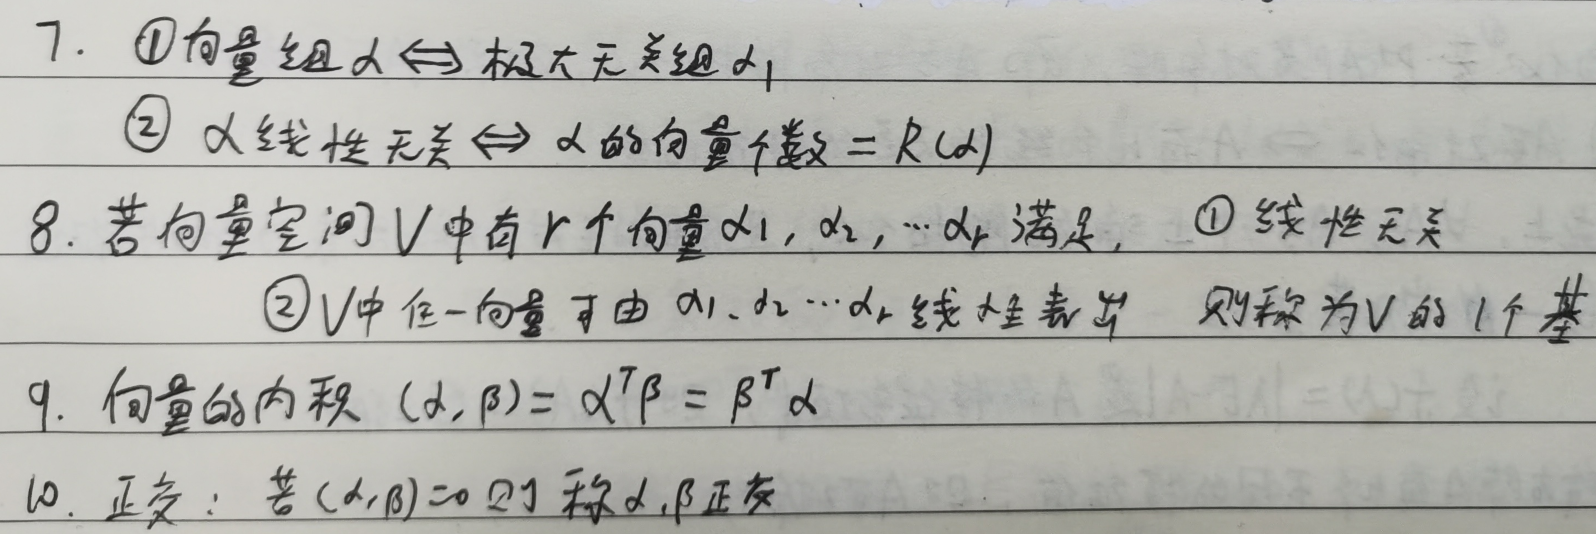 7. ①向量组α⇔极大无关组α₁
② α线性无关⇔α的向量个数=R(α)
8. 若向量空间V中有r个向量α1, α2, …αr满足, ①线性无关
②V中任一向量可由α1、α2…αr线性表出 则称为V的1个基
9. 向量的内积 (α, β)=αᵀβ=βᵀα
10. 正交: 若(α,β)=0则称α,β正交